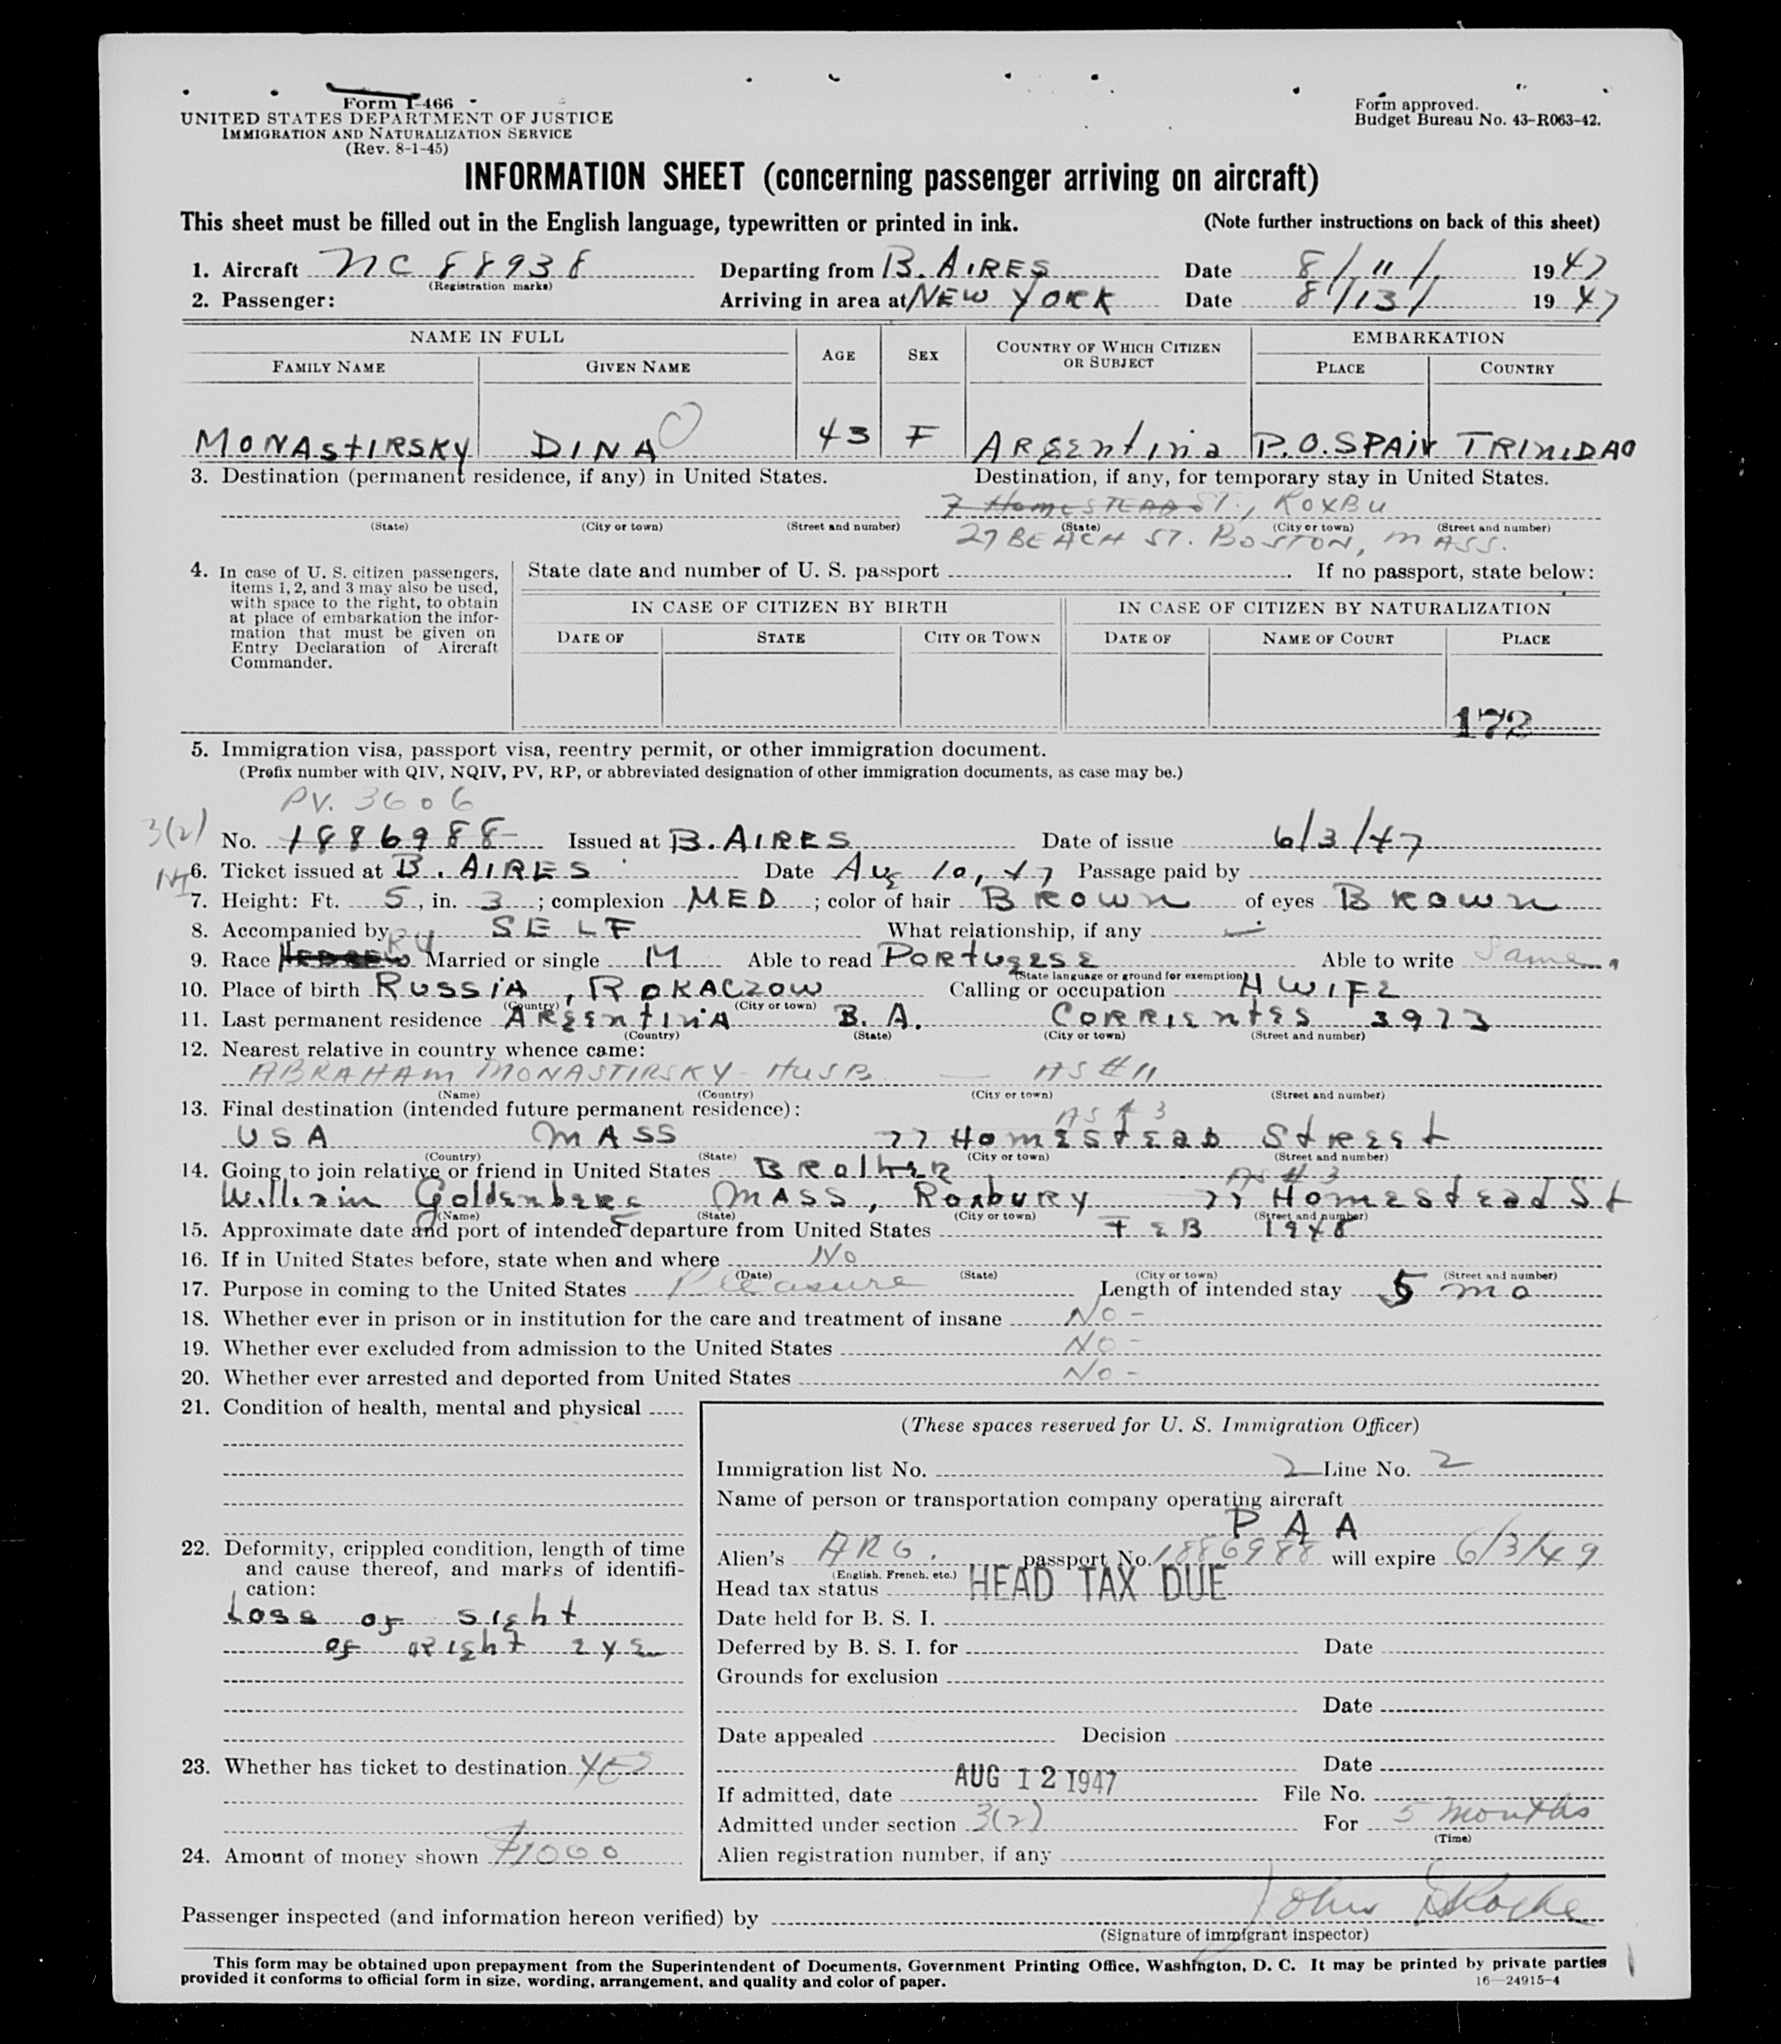 Form I-466
UNITED STATES DEPARTMENT OF JUSTICE
IMMIGRATION AND NATURALIZATION SERVICE
(Rev. 8-1-45)
Form approved.
Budget Bureau No. 43-R063-42.
INFORMATION SHEET (concerning passenger arriving on aircraft)
This sheet must be filled out in the English language, typewritten or printed in ink. (Note further instructions on back of this sheet)
1. Aircraft NC 88938 Departing from B. AIRES Date 8/11/ 1947
(Registration marks)
2. Passenger: Arriving in area at NEW YORK Date 8/13/ 1947
NAME IN FULL AGE SEX COUNTRY OF WHICH CITIZEN OR SUBJECT EMBARKATION
FAMILY NAME GIVEN NAME PLACE COUNTRY
MONASTIRSKY DINA 43 F ARGENTINA P.O.SPAIN TRINIDAD
3. Destination (permanent residence, if any) in United States. Destination, if any, for temporary stay in United States.
7 HOMESTEAD ST., ROXBU
(State) (City or town) (Street and number) (State) (City or town) (Street and number)
27 BEACH ST. BOSTON, MASS.
4. In case of U. S. citizen passengers, items 1, 2, and 3 may also be used, with space to the right, to obtain at place of embarkation the information that must be given on Entry Declaration of Aircraft Commander.
State date and number of U. S. passport . If no passport, state below:
IN CASE OF CITIZEN BY BIRTH IN CASE OF CITIZEN BY NATURALIZATION
DATE OF STATE CITY OR TOWN DATE OF NAME OF COURT PLACE
172
5. Immigration visa, passport visa, reentry permit, or other immigration document.
(Prefix number with QIV, NQIV, PV, RP, or abbreviated designation of other immigration documents, as case may be.)
PV. 3606
3(2) No. 1886988 Issued at B. AIRES Date of issue 6/3/47
6. Ticket issued at B. AIRES Date Aug 10, 47 Passage paid by
7. Height: Ft. 5, in. 3; complexion MED; color of hair BROWN of eyes BROWN
8. Accompanied by SELF What relationship, if any
9. Race HEBREW RU Married or single M Able to read PORTUGESE Able to write Same
(State language or ground for exemption)
10. Place of birth RUSSIA, ROKACZOW Calling or occupation HWIFE
(Country) (City or town)
11. Last permanent residence ARGENTINA B. A. CORRIENTES 3973
(Country) (State) (City or town) (Street and number)
12. Nearest relative in country whence came:
ABRAHAM MONASTIRSKY - HUSB. — AS #11
(Name) (Country) (City or town) (Street and number)
13. Final destination (intended future permanent residence): AS # 3
USA MASS 77 HOMESTEAD STREET
(Country) (State) (City or town) (Street and number)
14. Going to join relative or friend in United States BROTHER AS # 3
William Goldenberg MASS, Roxbury 77 Homestead St
(Name) (State) (City or town) (Street and number)
15. Approximate date and port of intended departure from United States FEB 1948
16. If in United States before, state when and where No
(Date) (State) (City or town) (Street and number)
17. Purpose in coming to the United States Pleasure Length of intended stay 5 mo
18. Whether ever in prison or in institution for the care and treatment of insane No -
19. Whether ever excluded from admission to the United States No -
20. Whether ever arrested and deported from United States No -
21. Condition of health, mental and physical
22. Deformity, crippled condition, length of time and cause thereof, and marks of identification:
Loss of sight
of right eye
23. Whether has ticket to destination YES
24. Amount of money shown $1000
(These spaces reserved for U. S. Immigration Officer)
Immigration list No. 2 Line No. 2
Name of person or transportation company operating aircraft
PAA
Alien's ARG. passport No. 1886988 will expire 6/3/49
(English, French, etc.)
Head tax status HEAD TAX DUE
Date held for B. S. I.
Deferred by B. S. I. for Date
Grounds for exclusion
Date
Date appealed Decision
Date
If admitted, date AUG 12 1947 File No.
Admitted under section 3(2) For 5 months
(Time)
Alien registration number, if any
Passenger inspected (and information hereon verified) by John
(Signature of immigrant inspector)
This form may be obtained upon prepayment from the Superintendent of Documents, Government Printing Office, Washington, D. C. It may be printed by private parties
provided it conforms to official form in size, wording, arrangement, and quality and color of paper. 16—24915-4